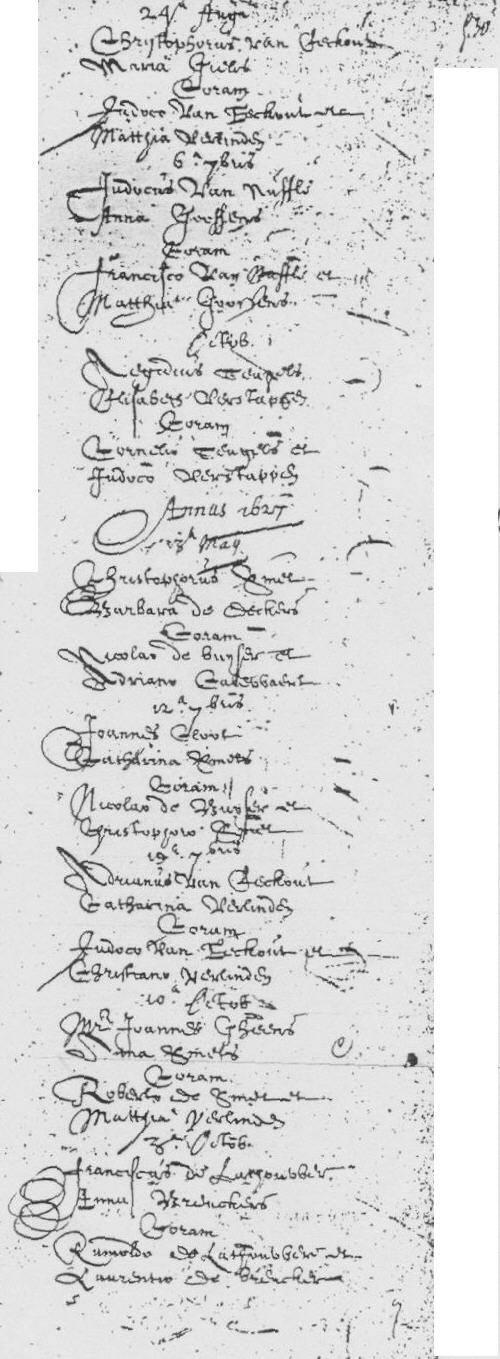 24ᵃ Aug
Christophorus van Eeckout
Maria Giels
Coram
Judoco Van Eeckout et
Matthia Verlinden
6ᵃ 7bris
Judocus Van Nuffle
Anna Goossens
Coram
Francisco Van Nuffle et
Matthia Goossens
Octob.
Aegidius Teugels
Elisabeth Verstappen
Coram
Cornelio Teugels et
Judoco Verstappen
Annus 1627
13ᵃ May
Christophorus Smet
Barbara de Deckers
Coram
Nicolao de buyser et
Adriano
12ᵃ 7bris
Joannes Cloot
Catharina Smets
Coram
Nicolao de Buyser et
Christophoro Smet
19ᵃ 7bris
Adrianus Van Eeckout
Catharina Verlinden
Coram
Judoco Van Eeckout et
Christiano Verlinden
10ᵃ Octob
Mr Joannes Gheens
Anna Smets
Coram
Roberto de Smet et
Matthia Verlinden
Octob.
Franciscus de Lathouwer
Anna Brenckers
Coram
Rumoldo de Lathouwer et
Laurentio de brencker